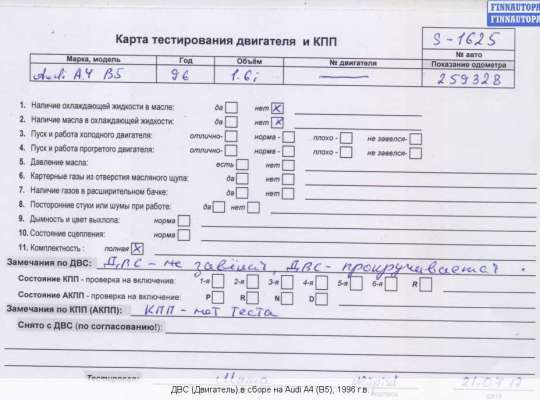 FINNAUTOPA
FINNAUTOPA
Карта тестирования двигателя и КПП
S-1625
№ авто
Марка, модель Год Объём № двигателя Показание одометра
Audi A4 B5 96 1.6i 259328
1. Наличие охлаждающей жидкости в масле: да нет X
2. Наличие масла в охлаждающей жидкости: да нет X
3. Пуск и работа холодного двигателя: отлично- норма - плохо - не завелся-
4. Пуск и работа прогретого двигателя: отлично- норма - плохо - не завелся-
5. Давление масла: есть нет
6. Картерные газы из отверстия масляного щупа: да нет
7. Наличие газов в расширительном бачке: да нет
8. Посторонние стуки или шумы при работе: да нет
9. Дымность и цвет выхлопа: норма
10. Состояние сцепления: норма
11. Комплектность : полная X
Замечания по ДВС: ДВС - не завёлся, ДВС - прокручивается.
Состояние КПП - проверка на включение: 1-я 2-я 3-я 4-я 5-я 6-я R
Состояние АКПП - проверка на включение: P R N D
Замечания по КПП (АКПП): КПП - нет теста
Снято с ДВС (по согласованию!):
Тестировал
ДВС (Двигатель) в сборе на Audi A4 (B5), 1996 г.в.